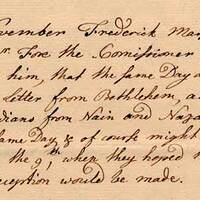 vember Frederick Mar
r. Fox the Comissioner
him, that the same Day a
Letter from Bethlehem, a
dians from Nain and Naza
ame Day, & of course might
the 9th, when they hoped
ception would be made.